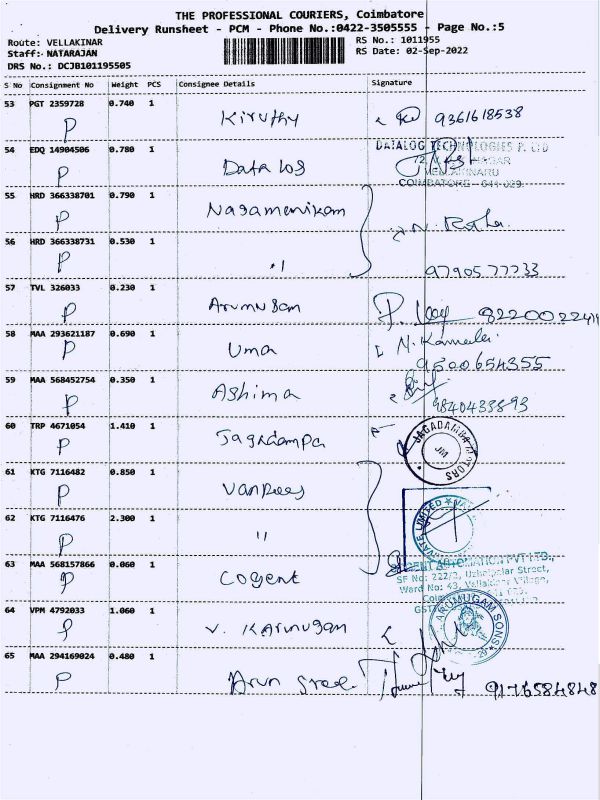 THE PROFESSIONAL COURIERS, Coimbatore
Delivery Runsheet - PCM - Phone No.:0422-3505555 - Page No.:5
Route: VELLAKINAR
RS No.: 1011955
Staff: NATARAJAN
RS Date: 02-Sep-2022
DRS No.: DCJB101195505
S No Consignment No Weight PCS Consignee Details Signature
53 PGT 2359728 0.740 1
P Kiruthy 9361618538
54 EDQ 14904506 0.780 1
P Data log
DATALOG TECHNOLOGIES P. LTD
NAGAR
VELLAKINARU
COIMBATORE - 641 029
55 HRD 366338701 0.790 1
P Nagamanikam
56 HRD 366338731 0.530 1
P "
9790577733
57 TVL 326033 0.230 1
P Arumugam
8220022414
58 MAA 293621187 0.690 1
P Uma N. Kamala
9500654355
59 MAA 568452754 0.350 1
P Ashima
9840433893
60 TRP 4671054 1.410 1
P Jagadampa
JAGADAMBA MOTORS
JM
61 KTG 7116482 0.850 1
P Vanrees
62 KTG 7116476 2.300 1
P "
PRIVATE LIMITED
63 MAA 568157866 0.060 1
P Cogent
COGENT AUTOMATION PVT LTD.,
SF No: 222/2, Street,
Ward No: 43, Vellakinar Village,
64 VPM 4792033 1.060 1
P V. Karmugam
ARUMUGAM SONS
65 MAA 294169024 0.480 1
P Arun
9176584848